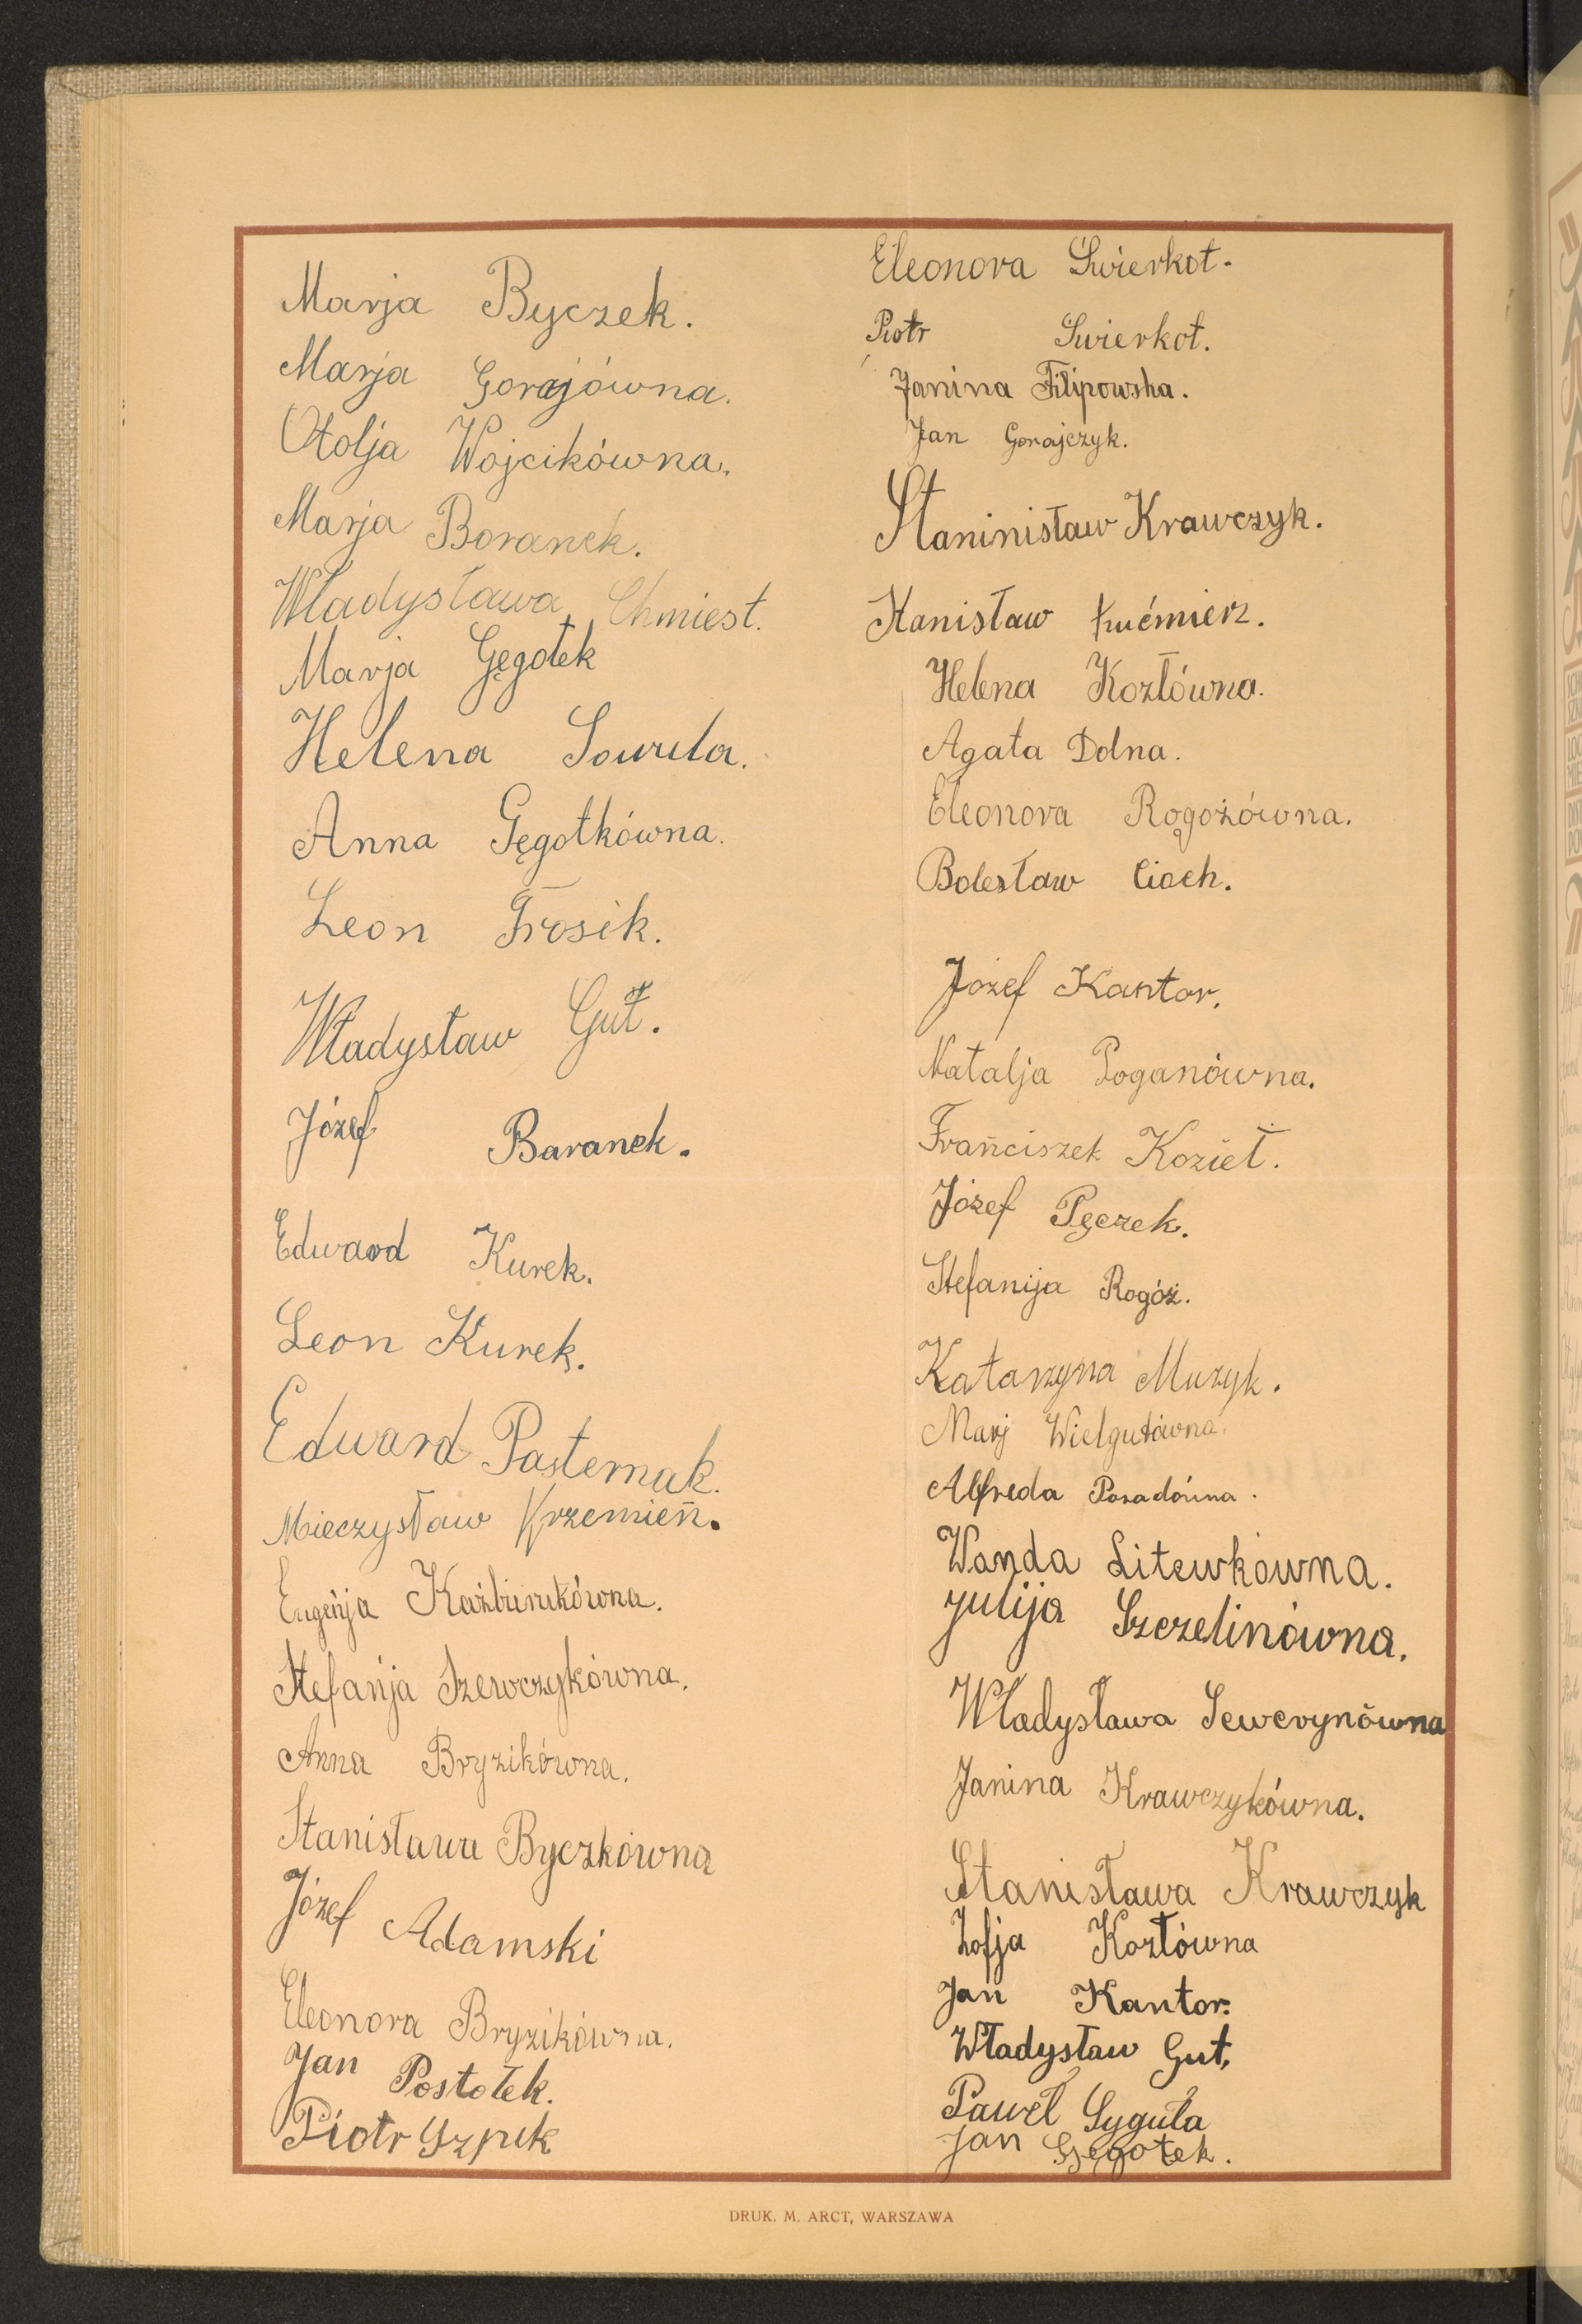 Marja Byczek.
Marja Gorajówna.
Otolja Wojcikówna.
Marja Boranek.
Władysława Chmiest.
Marja Gęgotek
Helena Sowula.
Anna Gęgotkówna.
Leon Frosik.
Władysław Gut.
Józef Baranek.
Edward Kurek.
Leon Kurek.
Edward Pasternak.
Mieczysław Krzemień.
Eugenja
Stefanja Szewczykówna.
Anna Bryzikówna.
Stanisława Byczkówna
Józef Adamski
Eleonora Bryzikówna.
Jan Postołek.
Piotr Szpuk
Eleonora Świerkot.
Piotr Swierkot.
Janina Filipowska.
Jan Gorajczyk.
Staninisław Krawczyk.
Stanisław Kućmierz.
Helena Kozłówna.
Agata Dolna.
Eleonora Rogożówna.
Bolesław Cioch.
Józef Kantor.
Natalja Poganówna.
Franciszek Kozieł.
Józef Pęczek.
Stefanija Rogóż.
Katarzyna Muzyk.
Marj Wielgutówna.
Alfreda
Wanda Litewkówna.
Julija Szczelinówna.
Władysława Sewerynówna
Janina Krawczykówna.
Stanisława Krawczyk
Zofja Kozłówna
Jan Kantor.
Władysław Gut.
Paweł Syguła
Jan Gęgotek.
DRUK. M. ARCT, WARSZAWA